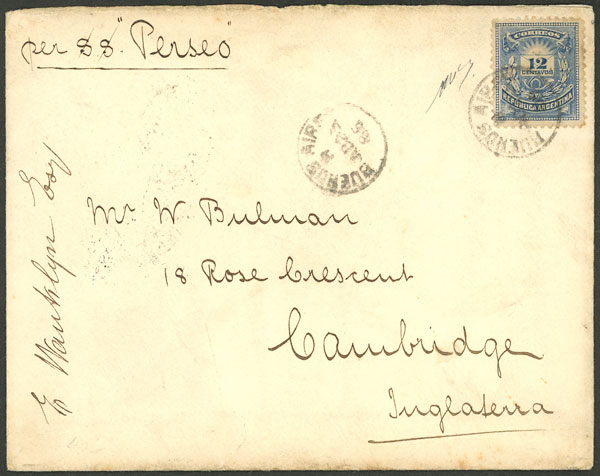 per SS "Perseo"
CORREOS
12
CENTAVOS
REPUBLICA ARGENTINA
BUENOS AIRES
BUENOS AIRES
86
Mr W. Bulman
18 Rose Crescent
Cambridge
Inglaterra
Wanklyn Esqr